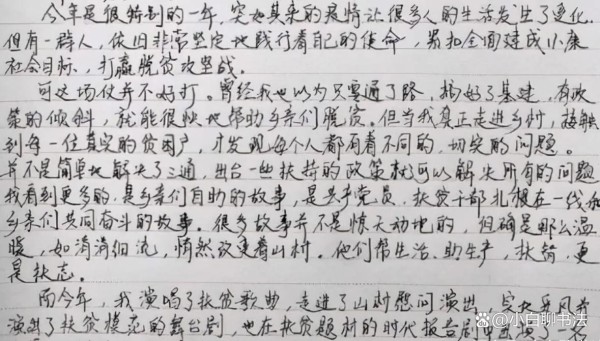 今年是很特别的一年,突如其来的疫情让很多人的生活发生了变化。
但有一群人,依旧非常坚定地践行着自己的使命,紧扣全面建成小康
社会目标,打赢脱贫攻坚战。
可这场仗并不好打。曾经我也以为只要通了路,搞好了基建,有政
策的倾斜,就能很快地帮助乡亲们脱贫。但当我真正走进乡村,接触
到每一位真实的贫困户,才发现每个人都有着不同的、切实的问题。
并不是简单地解决了三通,出台一些扶持的政策就可以解决所有的问题
我看到更多的,是乡亲们自助的故事,是共产党员、扶贫干部扎根在一线和
乡亲们共同奋斗的故事。很多故事并不是惊天动地的,但确是那么温
暖,如涓涓细流,悄然改变着山村。他们帮生活、助生产,扶智,更
是扶志。
而今年,我演唱了扶贫歌曲,走进了山村慰问演出,
演出了扶贫模范的舞台剧,也在扶贫题材的时代报告剧中
头条 @小白聊书法